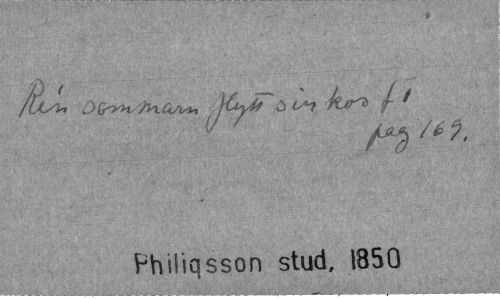 Rén sommarn flytt sin kos
pag 169.
Philiqsson stud, 1850